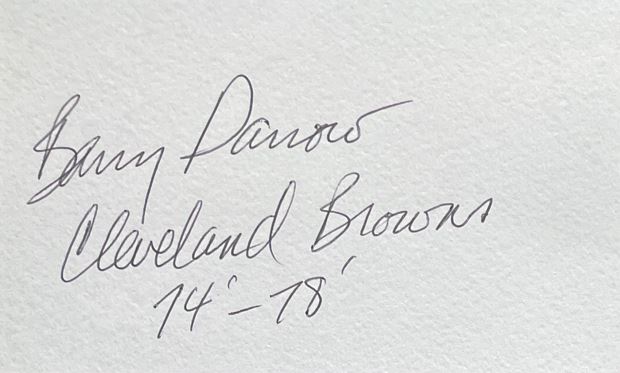 Barry Darrow
Cleveland Browns
74'-78'